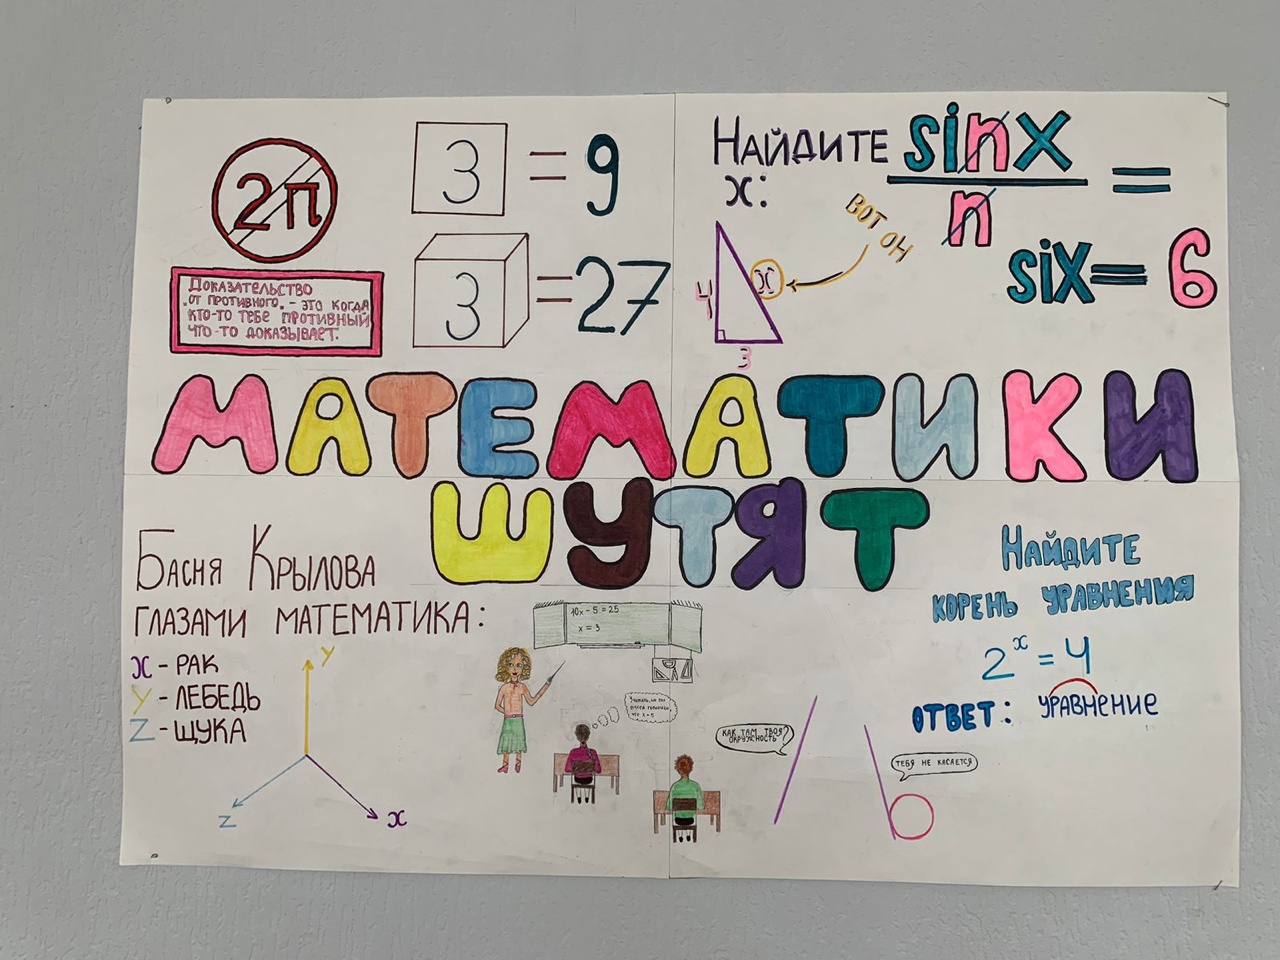 2π
3 = 9
3 = 27
ДОКАЗАТЕЛЬСТВО
"ОТ ПРОТИВНОГО" - ЭТО КОГДА
КТО-ТО ТЕБЕ ПРОТИВНЫЙ
ЧТО-ТО ДОКАЗЫВАЕТ.
НАЙДИТЕ
x:
ВОТ ОН
4
x
3
sinx
n
=
six = 6
МАТЕМАТИКИ
ШУТЯТ
БАСНЯ КРЫЛОВА
ГЛАЗАМИ МАТЕМАТИКА:
x - РАК
y - ЛЕБЕДЬ
z - ЩУКА
y
z
x
10x - 5 = 25
x = 3
что x = 5
КАК ТАМ ТВОЯ
ОКРУЖНОСТЬ?
ТЕБЯ НЕ КАСАЕТСЯ
НАЙДИТЕ
КОРЕНЬ УРАВНЕНИЯ
2^x = 4
ОТВЕТ: уравнение